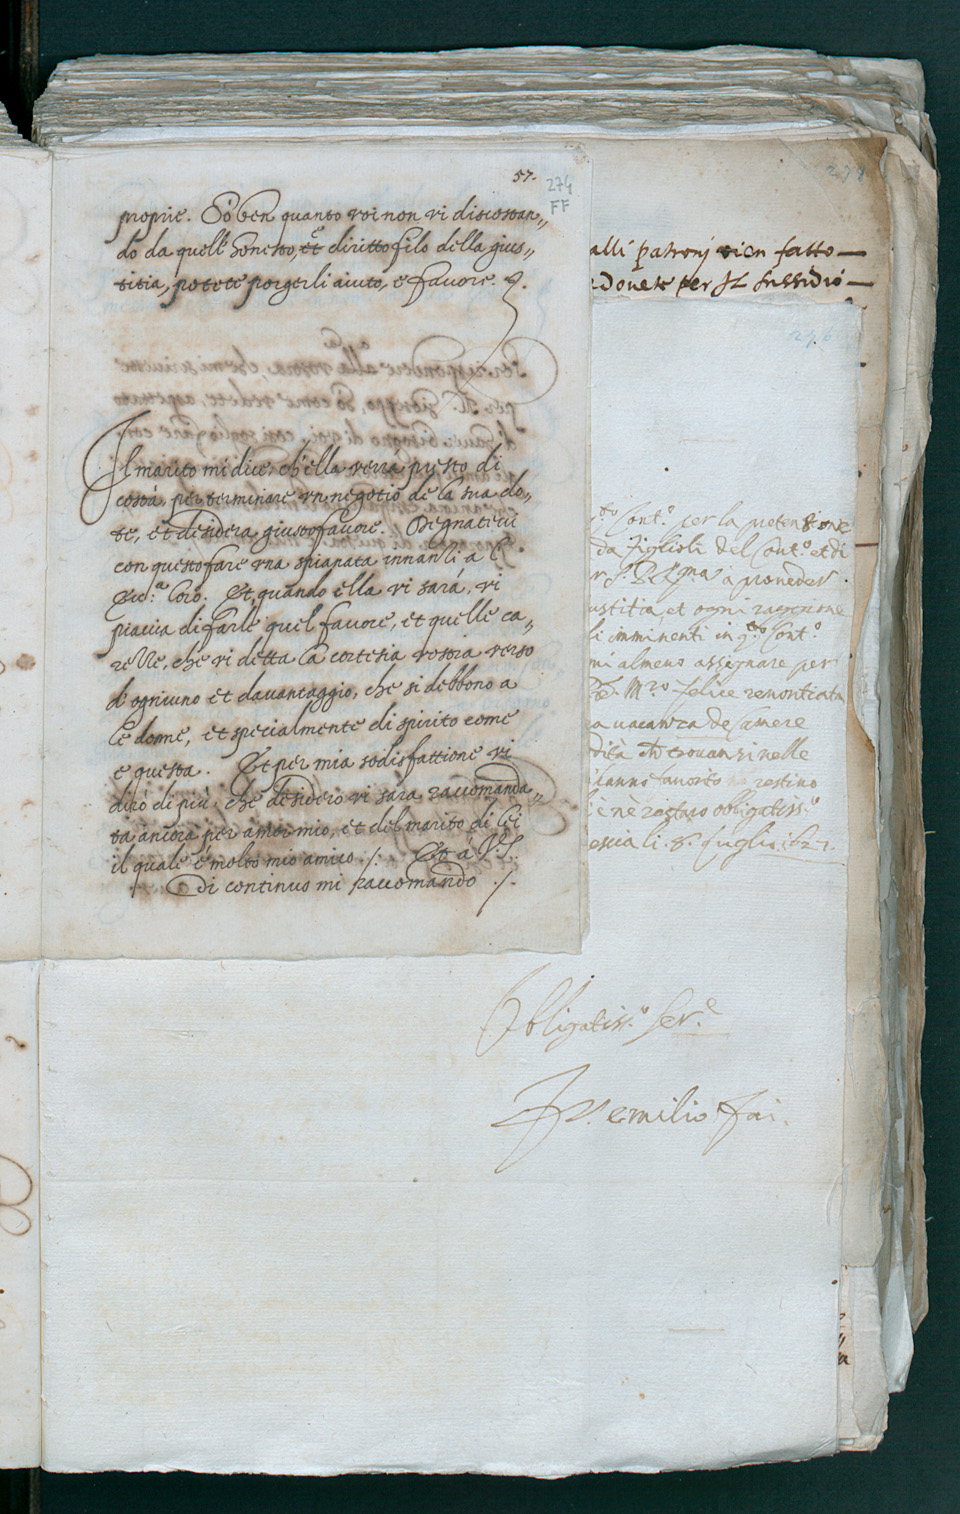 57.
274
FF
proprie. So ben quanto voi non vi discostan„
do da quell' honesto, et diritto filo della gius„
titia, potete porgerli aiuto, e favore.
Il marito mi dice, ch'ella verrá presto di
costá, per terminare un negotio de la sua do„
te, et desidera giusto favore. Degnatevi
con questo fare una spianata innanzi a l'
Ecc.a loro. Et quando ella vi sará, vi
piaccia di farle quel favore, et quelle ca„
rezze, che vi detta la cortesia vostra verso
d'ogniuno et davantaggio, che si debbono a
le donne, et specialmente di spirito come
e questa. Et per mia sodisfattione vi
diró di piú, che desidero vi sara raccomanda„
ta ancora per amor mio, et del marito di lei
il quale é molto mio amico ./. Et á V.S.
di continuo mi raccomando ./.
278
alli patroni vien fatto
per il sussidió
276
Cont.o per la pretensione
da figlioli del Cont.o et di
á proveder
ustitia, et ogni raggione
li imminenti in q.to Cont.o
mi almeno assegnare per
M.ro felice renontiata
vacanza de
trovansi nelle
restino
restaro obligatiss.o
escia li. 8. luglio 1627.
Obligatiss.o Ser.e
emilio